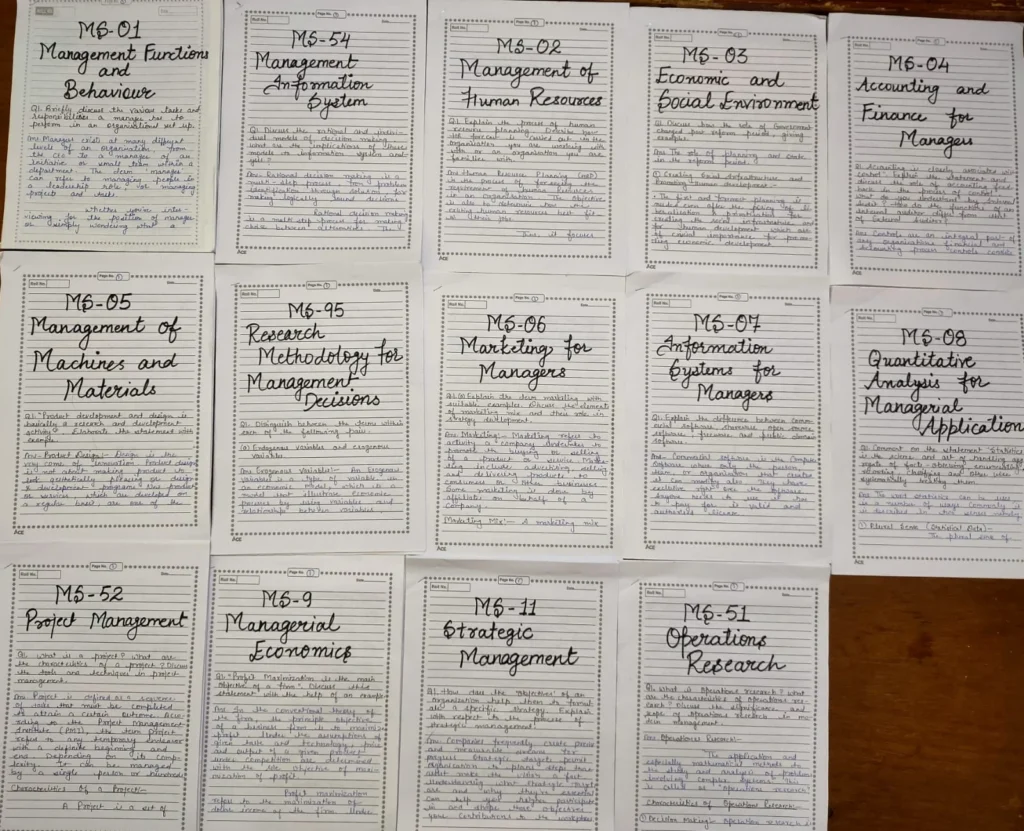 MS-01
Management Functions
and
Behaviour
Q1. Briefly discuss the various tasks and
responsibilities a manager has to
perform in an organisational set up.
Ans: Managers exist at many different
levels of an organisation from
the CEO to a manager of an
initiative or small team within a
department. The term 'manager'
can refer to managing people in
a leadership role or managing
projects and tasks.
whether you're inter-
viewing for the position of manager
or simply wondering what a
Roll No.
Page No. 1
Date
MS-54
Management
Information
System
Q1. Discuss the rational and
dual models of decision making
what are the implications of these
models to information system
Ans:- Rational decision making is a
multi-step process, from problem
identification through solution for
making logically sound decisions.
Rational decision making
is a multi step process for making
choice between alternatives. The
Ace
Roll No.
Page No. 1
Date
MS-02
Management of
Human Resources
Q1. Explain the process of human
resource planning. Describe how
the forecast is carried out in the
organisation you are working with
or an organisation you are
familiar with.
Ans:- Human Resource Planning (HRP)
is the process of forecasting the
requirement of human resources
in an organization. The objective
Ace
Roll No.
Page No. 1
Date
MS-03
Economic and
Social Environment
Q1. Discuss how the role of Government
changed post reform periods, giving
examples.
Ans: The role of planning and state
in the reform period:-
① Creating Social Infrastructure and
Promoting human development:-
The first and foremost planning is
needed even after the policy of
liberalisation & privatisation for
creating the social infrastructure and
for human development which are
of crucial importance for promo-
ting economic development.
Ace
Roll No.
Page No. 1
Date
MS-04
Accounting and
Finance for
Managers
Q1. Accounting is closely associated with
control. Explain the statement and
discuss the role of accounting feed
back in the process of control.
what do you understand by internal
audit? How do the functions of an
internal auditor differ from that
of External Auditor.
Ans: Controls are an integral part of
any organization's financial and
Ace
Roll No.
Page No. 1
Date
MS-05
Management of
Machines and
Materials
Q1. "Product development and design is
basically a research and development
activity". Elaborate the statement with
example.
Ans:- Product Design:- Design is the
very core of innovation. Product design
is not about making product to
look aesthetically pleasing or design
& development programs. The product
or services which are developed on
a regular basis is one of the
Ace
Roll No.
Page No. 1
Date
MS-95
Research
Methodology for
Management
Decisions
Q1. Distinguish between the terms within
each of the following pairs:-
(a) Endogenous variable and exogenous
variable.
Ans:- Exogenous Variable:- An Exogenous
variable is a type of variable in
an economic model, which is a
model that illustrates economic
process by using variables and
relationships between variables.
Ace
Roll No.
Page No. 1
Date
MS-06
Marketing for
Managers
Q1.(a) Explain the term marketing with
suitable examples. Discuss the elements
of marketing mix and their role in
strategy development.
Ans: Marketing:- Marketing refers to
activity a company undertakes to
promote the buying or selling
of a product or service. Marke-
ting includes advertising, selling
and delivering products to
consumers or other businesses.
Some marketing is done by
affiliates on behalf of a
company.
Marketing Mix:- A marketing mix
Ace
Roll No.
Page No. 1
Date
MS-07
Information
Systems for
Managers
Q1. Explain the difference between Comm-
ercial software, shareware, open source
software, freeware and public domain
software.
Ans:- Commercial software is the Computer
Software where only the person,
team, or organisation that created
it can modify also they have
exclusive right over the software.
Anyone needs to use it has
to pay for is valid and
authorized license.
Ace
Roll No.
Page No. 1
Date
MS-08
Quantitative
Analysis for
Managerial
Application
Q1. Comment on the statement "Statistics
is the science and art of handling aggre-
gate of facts - observing, enumeration,
recording, classifying and otherwise
systematically treating them.
Ans: The word statistics can be used
in a number of ways commonly it
is described in two senses namely
① Plural Sense (Statistical Data):-
In plural sense of
Ace
Roll No.
Page No. 1
Date
MS-52
Project Management
Q1. What is a project? What are
the characteristics of a project? Discuss
the tools and techniques in project
management.
Ans: Project is defined as a sequence
of tasks that must be completed
to attain a certain outcome. Acco-
rding to the Project Management
Institute (PMI), the term Project
refers to any temporary endeavor
with a definite beginning and
end. Depending on its comp-
lexity, it can be managed
by a single person or hundreds.
Characteristics of a Project:-
A Project is a set of
Roll No.
Page No. 1
Date
MS-9
Managerial
Economics
Q1. "Profit Maximization is the main
objective of a firm". Discuss this
statement with the help of an example
Ans: In the conventional theory of
the firm, the principle objective
of a business firm is to maximize
profit. Under the assumptions of
given taste and technology, price
and output of a given product
under competition are determined
with the sole objective of maxi-
mization of profit.
Profit maximization
refers to the maximization of
income of the firm. Under
Roll No.
Page No. 1
Date
MS-11
Strategic
Management
Q1. How does the 'objectives' of an
organization help them to format
a specific strategy. Explain
with respect to the process of
strategic management
Ans: Companies frequently create precise
and measurable
and why they're essential
can help you
and shape those objectives
your contributions to the workplace
Roll No.
Page No. 1
Date
MS-51
Operations
Research
Q1. What is operations research? What
are the characteristics of operations res-
earch? Discuss the significance and
scope of operations research in mo-
dern management.
Ans: Operations Research:-
The application and
especially mathematical methods to
the study and analysis of problems
involving complex systems. This
is called as "operations research"
Characteristics of Operations Research:-
① Decision Making:- Operation research is